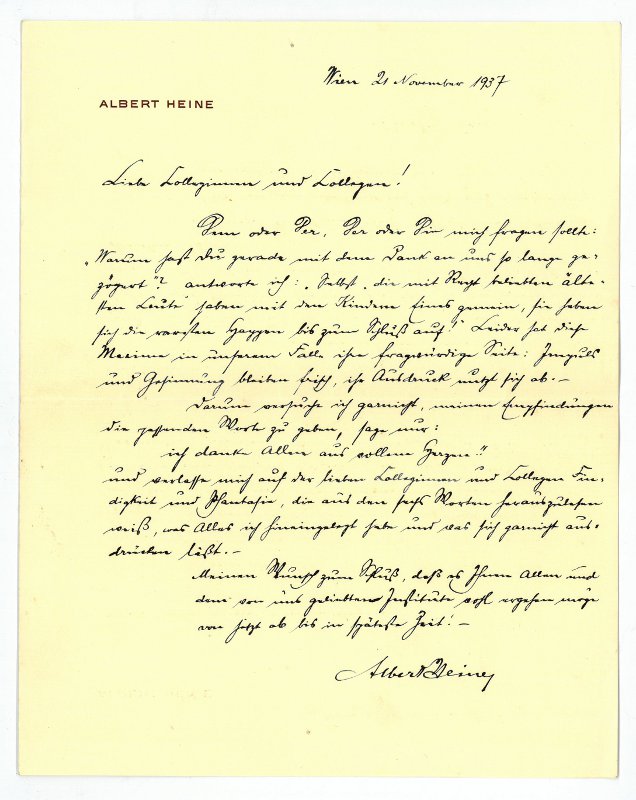 Wien 21 November 1937
ALBERT HEINE
Liebe Kolleginnen und Kollegen!
Dem oder Der, Der oder Die mich fragen sollte:
„Warum hast Du gerade mit dem Dank an uns so lange ge-
zögert"? antworte ich: „Selbst die mit Recht beliebten älte-
sten Leute haben mit den Kindern Eines gemein, sie heben
sich die rarsten Happen bis zum Schluß auf!" Leider hat diese
Maxime in unserem Falle ihre fragwürdige Seite: Impuls
und Gesinnung bleiben frisch, ihr Ausdruck nutzt sich ab. –
Darum versuche ich garnicht, meinen Empfindungen
die passenden Worte zu geben, sage nur:
ich danke Allen aus vollem Herzen!!
und verlasse mich auf der lieben Kolleginnen und Kollegen Fin-
digkeit und Phantasie, die aus den sechs Worten herauszulesen
weiß, was Alles ich hineingelegt habe und was sich garnicht aus-
drücken läßt. –
Meinen Wunsch zum Schluß, daß es Ihnen Allen und
dem von uns geliebten Institute wohl ergehen möge
von jetzt ab bis in späteste Zeit! –
Albert Heine